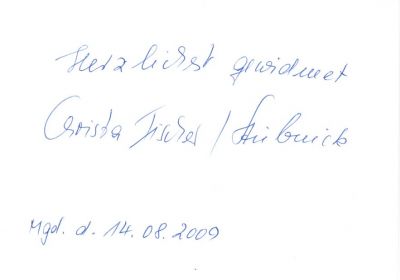 Herzlichst gewidmet
Christa Fischer / Stubnick
Mgd. d. 14.08.2009